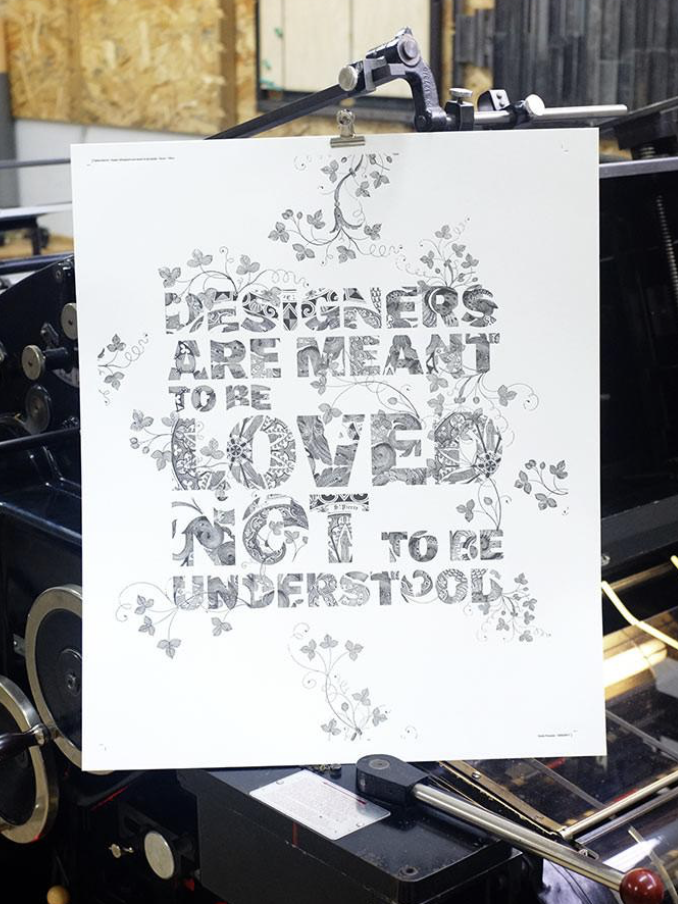 DESIGNERS
ARE MEANT
TO BE
LOVED
NOT TO BE
UNDERSTOOD